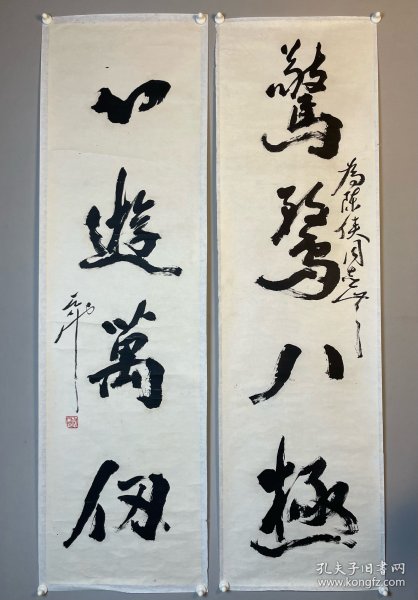 驚騖八極
為陳俠同志
心遊萬仞
孔夫子旧书网
www.kongfz.com